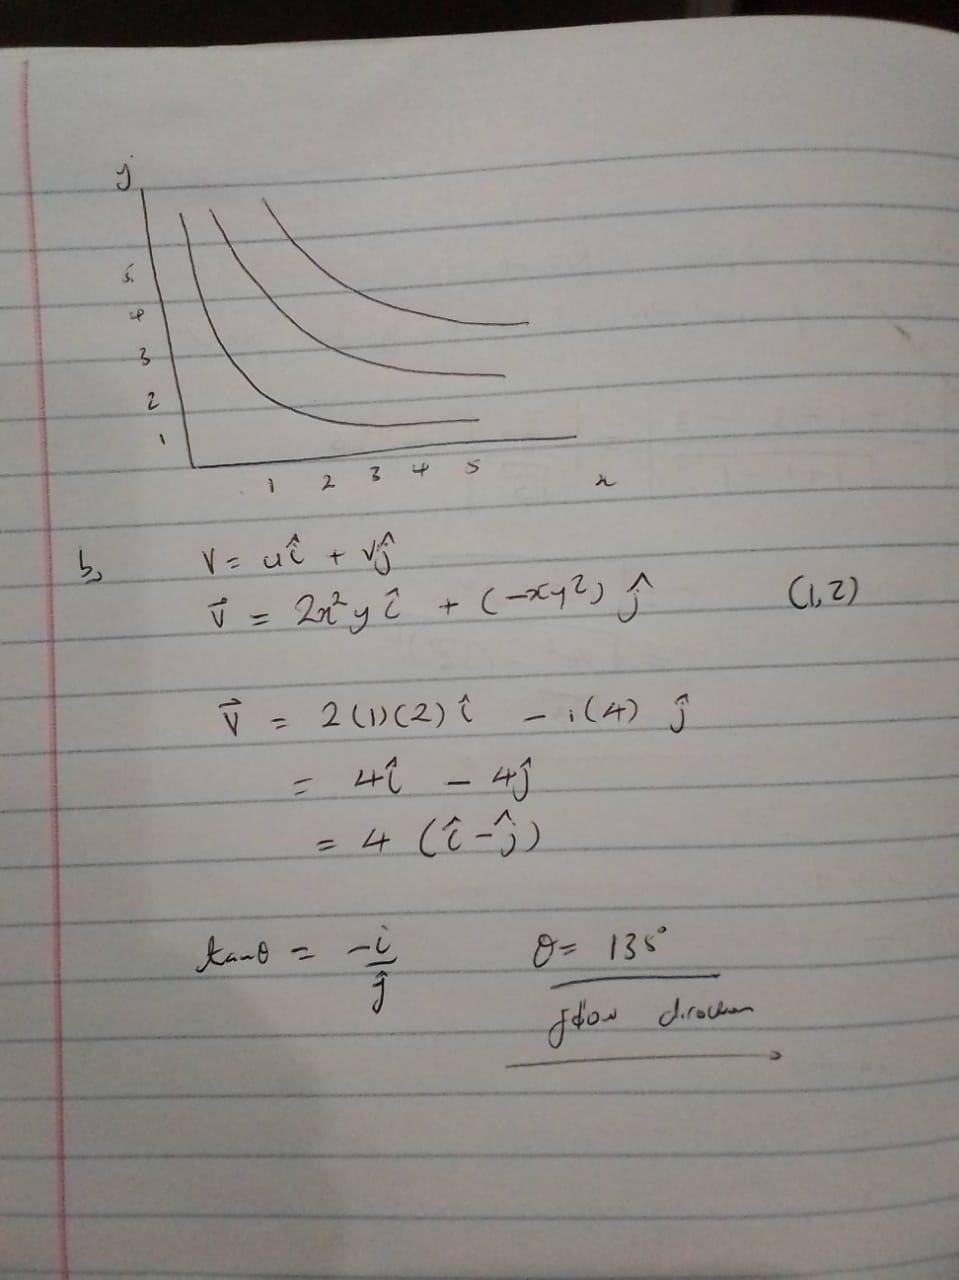 y
5
4
3
2
1
1 2 3 4 5 x
b, V = uî + vĵ
v⃗ = 2x²y î + (-xy²) ĵ (1,2)
v⃗ = 2(1)(2) î - 1(4) ĵ
= 4î - 4ĵ
= 4 (î - ĵ)
tanθ = -i/ĵ θ = 135°
flow direction